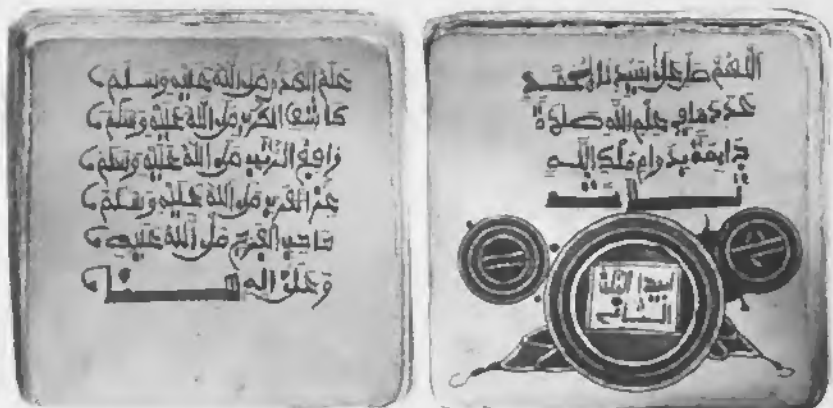 اللهم صل على سيدنا محمد
عدد ما في علم الله صلاة
دايمة بدوام ملك الله
علم الهدى صلى الله عليه وسلم
كاشف الكرب صلى الله عليه وسلم
رافع الرتب صلى الله عليه وسلم
عز العرب صلى الله عليه وسلم
صاحب الفرج صلى الله عليه
وعلى اله